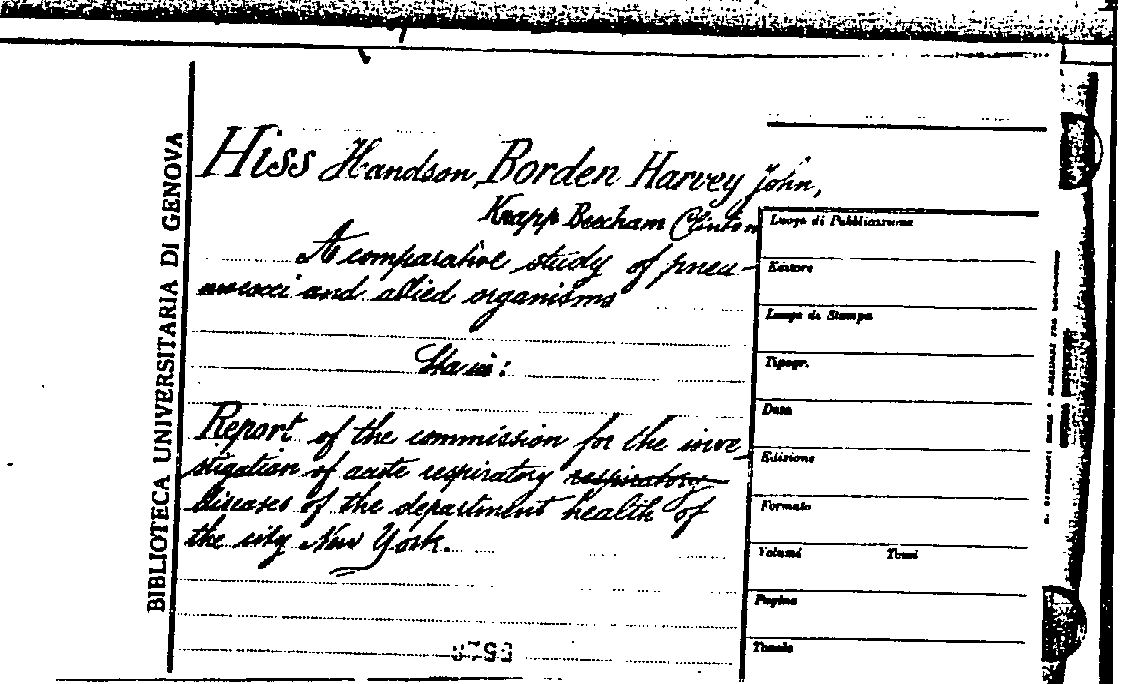 BIBLIOTECA UNIVERSITARIA DI GENOVA
Hiss Handson, Borden Harvey John,
Knapp Beecham Clinton
A comparative study of pneu-
mococci and allied organisms
Sta in:
Report of the commission for the inve-
stigation of acute respiratory respiratory
diseases of the department health of
the city New York.
Luogo di Pubblicazione
Editore
Luogo di Stampa
Tipogr.
Data
Edizione
Formato
Volumi Tomi
Pagine
Tavole